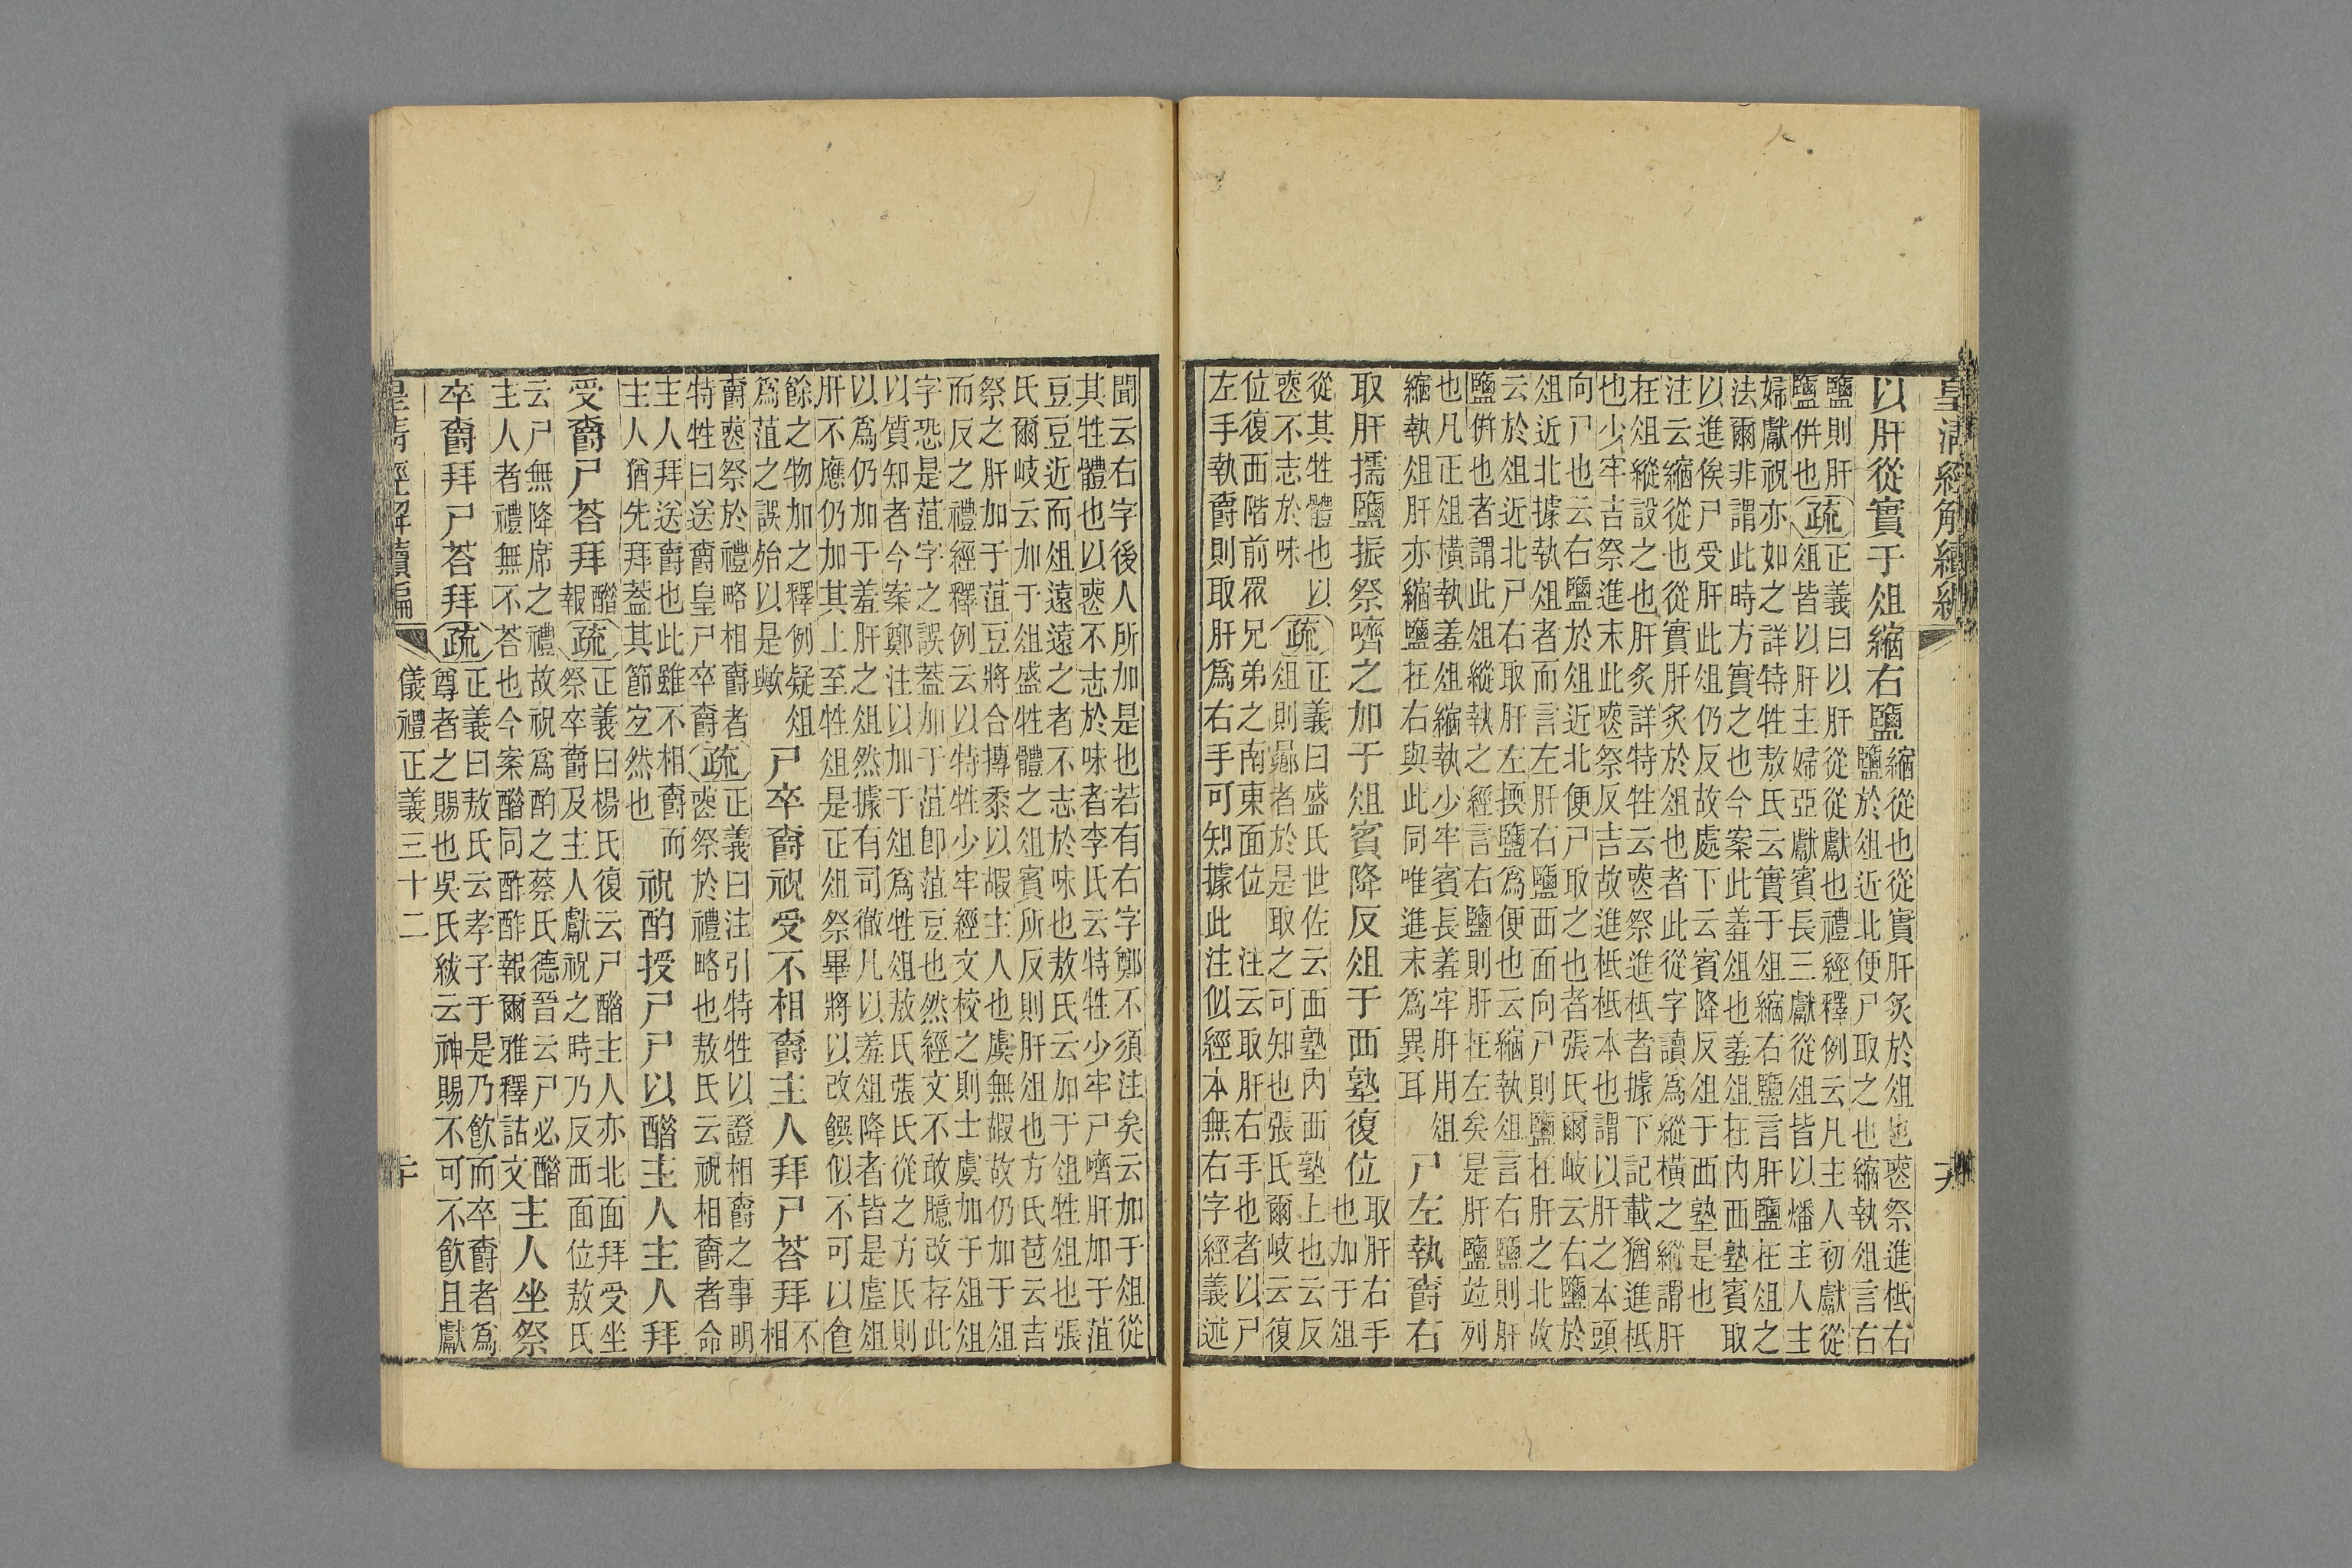 皇清經解續編
以肝從實于俎縮右鹽
縮從也從實肝炙於俎也喪祭進柢右
鹽於俎近北便尸取之也縮執俎言右
鹽則肝
鹽併也
疏
正義曰以肝從從獻也禮經釋例云凡主人初獻從
俎皆以肝主婦亞獻賓長三獻從俎皆以燔主人主
婦獻祝亦如之詳特牲敖氏云實于俎縮右鹽言肝鹽在俎之
法爾非謂此時方實之也今案此羞俎也羞俎在內西塾賓取
以進俟尸受肝此俎仍反故處下云賓降反俎于西塾是也
注云縮從也從實肝炙於俎也者此從字讀爲縱橫之縱謂肝
在俎縱設之也肝炙詳特牲云喪祭進柢者據下記載猶進柢
也少牢吉祭進末此喪祭反吉故進柢柢本也謂以肝之本頭
向尸也云右鹽於俎近北便尸取之也者張氏爾岐云右鹽於
俎近北據執俎者而言左肝右鹽西面向尸則鹽在肝之北故
云於俎近北尸右取肝左擩鹽爲便也云縮執俎言右鹽則肝
鹽併也者謂此俎縱執之經言右鹽則肝在左矣是肝鹽竝列
也凡正俎橫執羞俎縮執少牢賓長羞牢肝用俎
縮執俎肝亦縮鹽在右與此同唯進末爲異耳
尸左執爵右
取肝擩鹽振祭嚌之加于俎賓降反俎于西塾復位
取肝右手
也加于俎
從其牲體也以
喪不志於味
疏
正義曰盛氏世佐云西塾內西塾上也云反
俎則曏者於是取之可知也張氏爾岐云復
位復西階前眾兄弟之南東面位 注云取肝右手也者以尸
左手執爵則取肝爲右手可知據此注似經本無右字經義述
聞云右字後人所加是也若有右字鄭不須注矣云加于俎從
其牲體也以喪不志於味者李氏云特牲少牢尸嚌肝加于菹
豆豆近而俎遠遠之者不志於味也敖氏云加于俎牲俎也張
氏爾岐云加于俎盛牲體之俎賓所反則肝俎也方氏苞云吉
祭之肝加于菹豆將合摶黍以嘏主人也虞無嘏故仍加于俎
而反之禮經釋例云以特牲少牢經文校之則士虞加于俎俎
字恐是菹字之誤蓋加于菹卽菹豆也然經文不敢臆改存此
以質知者今案鄭注以加于俎爲牲俎敖氏張氏從之方氏則
以爲仍加于羞肝之俎然據有司徹凡以羞俎降者皆是虛俎
肝不應仍加其上至牲俎是正俎祭畢將以改饌似不可以食
餘之物加之釋例疑俎
爲菹之誤殆以是歟
尸卒爵祝受不相爵主人拜尸荅拜
不
相
爵喪祭於禮略相爵者
特牲曰送爵皇尸卒爵
疏
正義曰注引特牲以證相爵之事明
喪祭於禮略也敖氏云祝相爵者命
主人拜送爵也此雖不相爵而
主人猶先拜蓋其節宜然也
祝酌授尸尸以醋主人主人拜
受爵尸荅拜
醋
報
疏
正義曰楊氏復云尸醋主人亦北面拜受坐
祭卒爵及主人獻祝之時乃反西面位敖氏
云尸無降席之禮故祝爲酌之蔡氏德晉云尸必醋
主人者禮無不荅也今案醋同酢酢報爾雅釋詁文
主人坐祭
卒爵拜尸荅拜
疏
正義曰敖氏云孝子于是乃飮而卒爵者爲
尊者之賜也吳氏紱云神賜不可不飮且獻
皇清經解續編
儀禮正義三十二